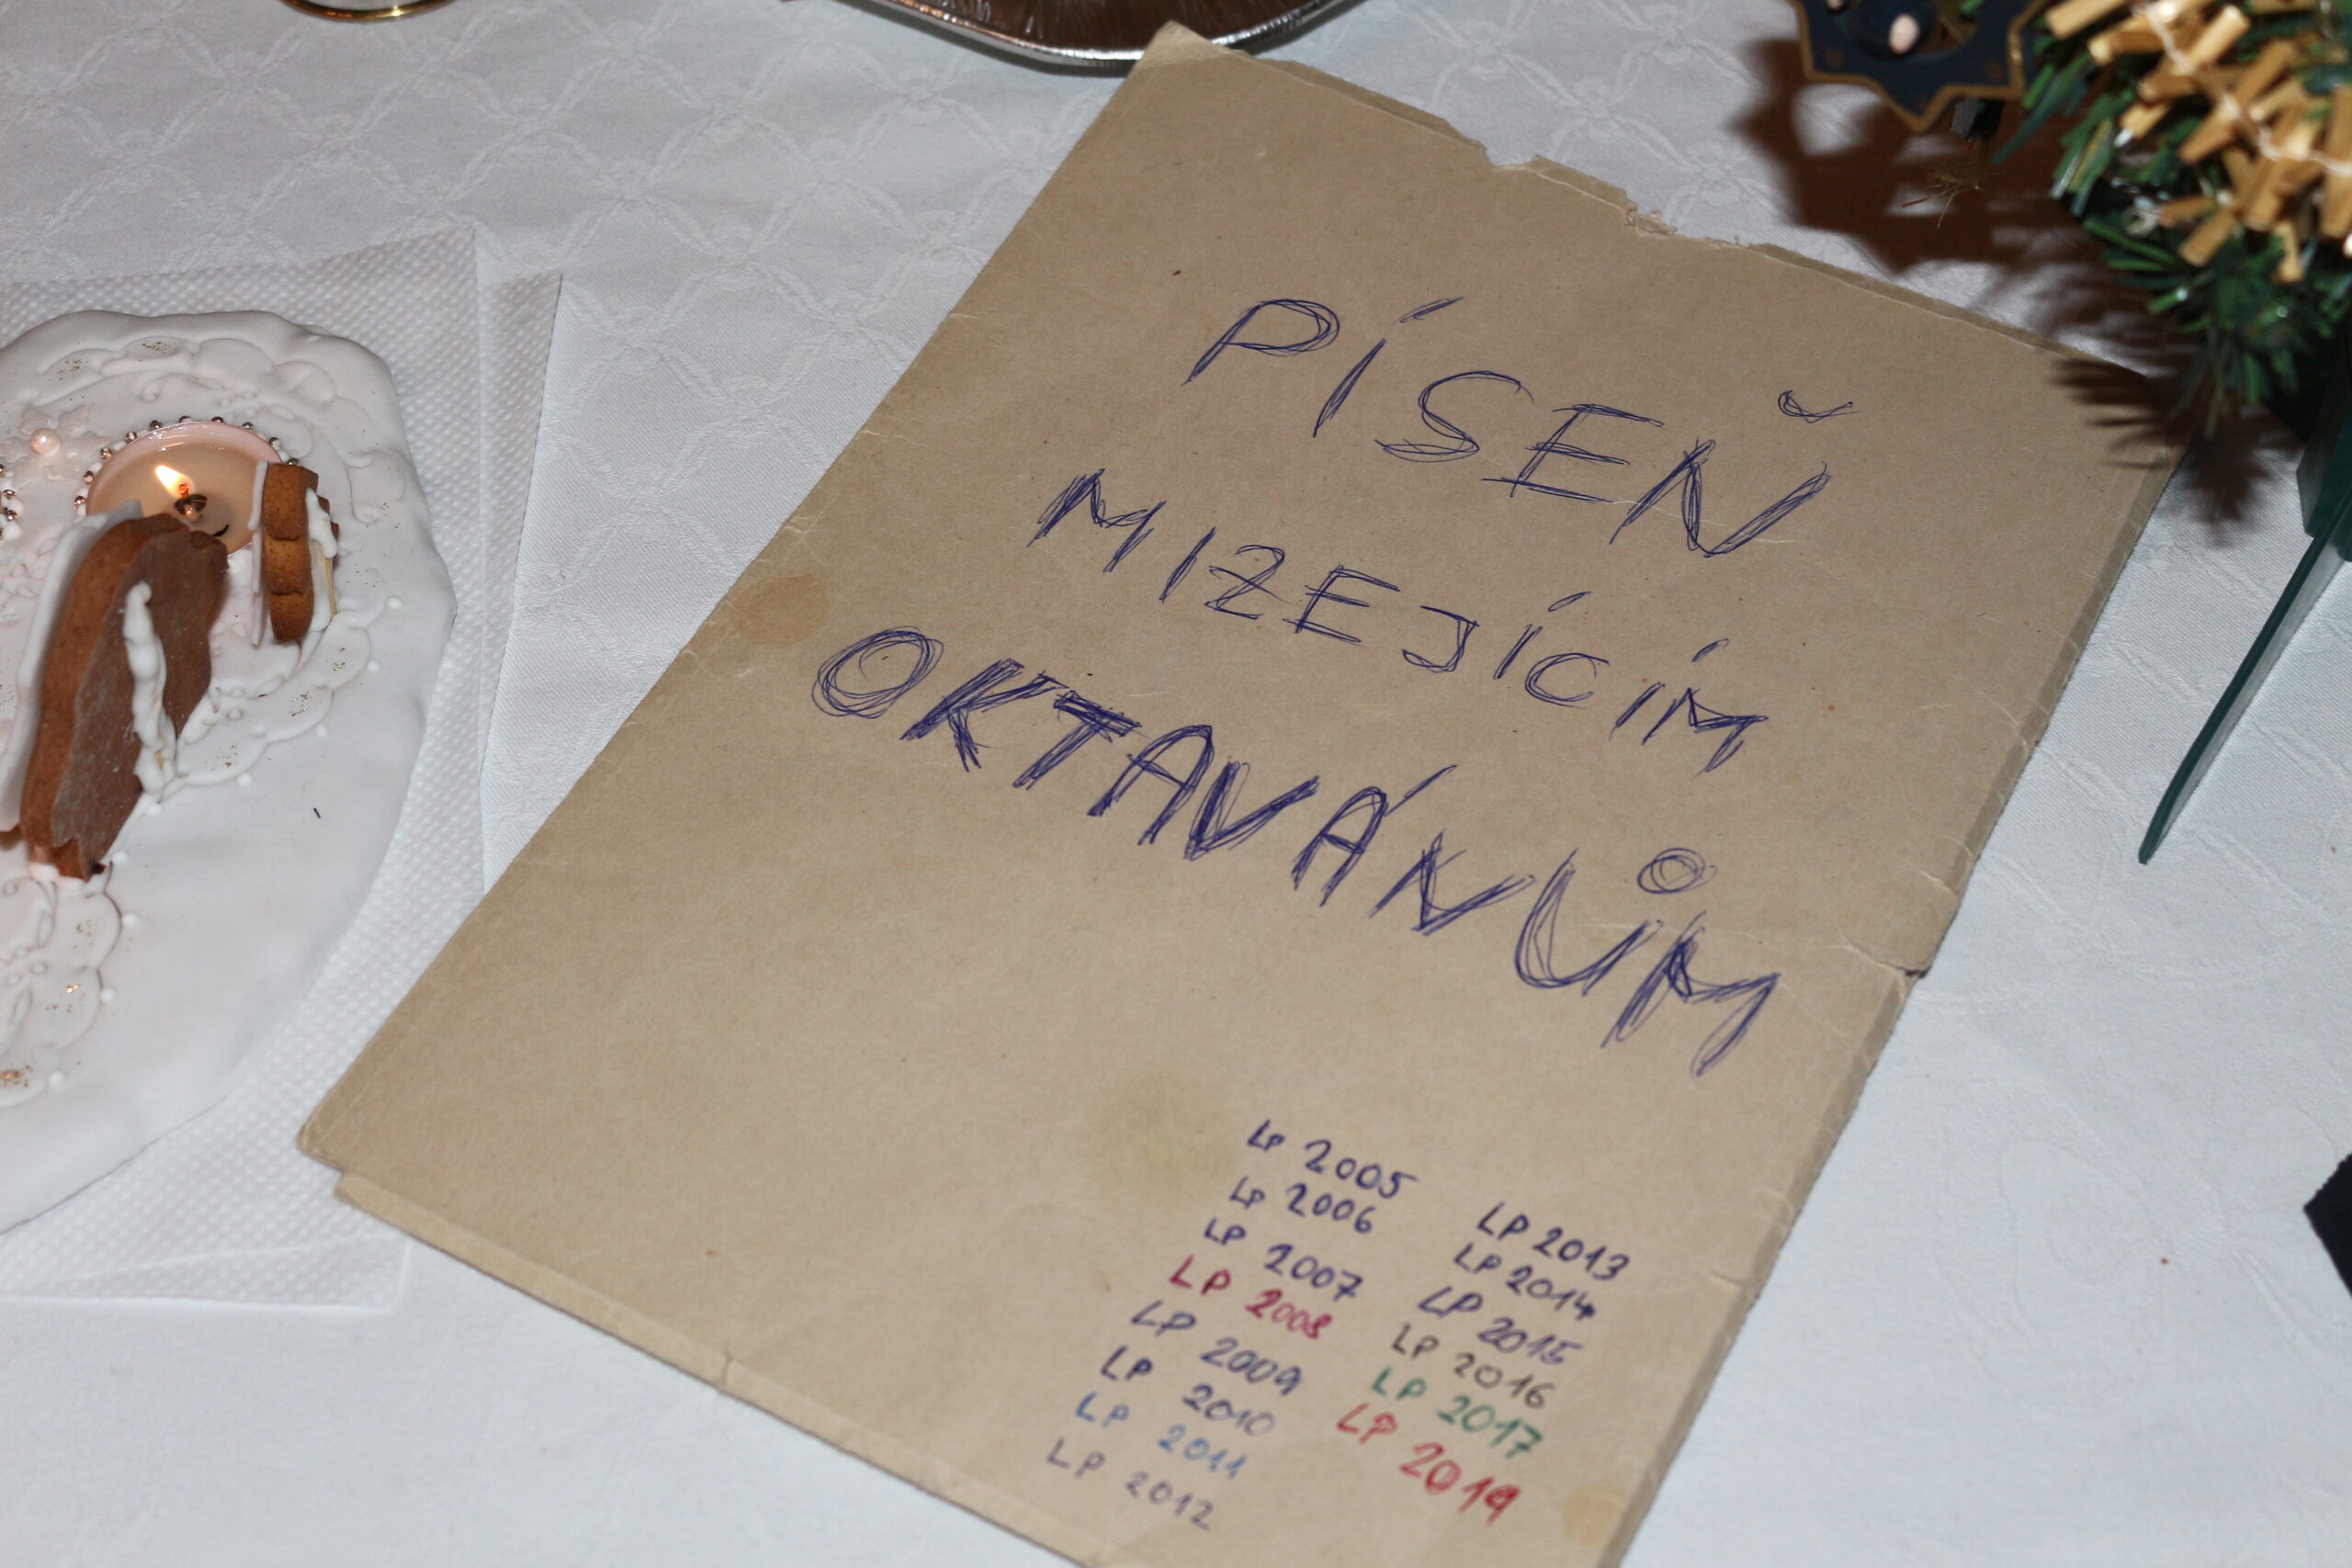 PÍSEŇ
MIZEJÍCÍM
OKTAVÁNŮM
LP 2005
LP 2006
LP 2007
LP 2008
LP 2009
LP 2010
LP 2011
LP 2012
LP 2013
LP 2014
LP 2015
LP 2016
LP 2017
LP 2019